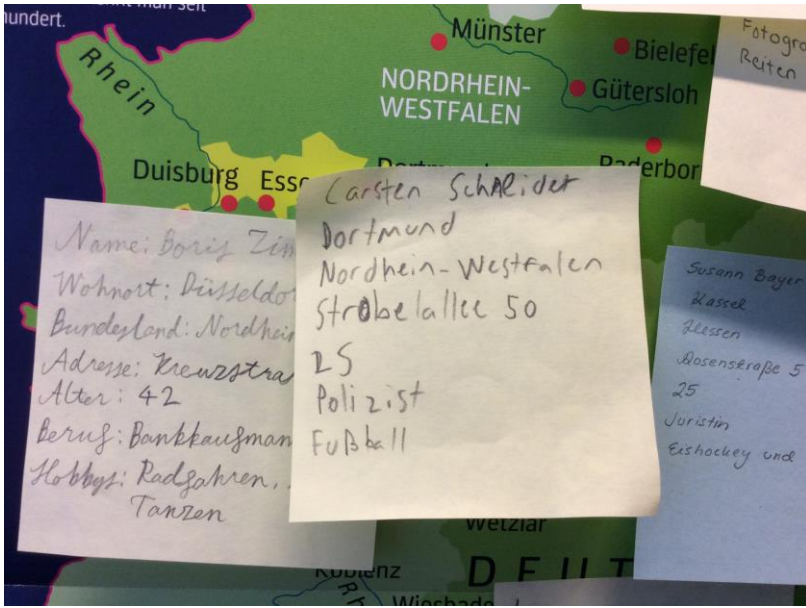 hundert.
man seit
Rhein
Münster
Bielefel
NORDRHEIN-
WESTFALEN
Gütersloh
Duisburg Esse
Paderbor
Fotogra
Reiten
Name: Boris Zim
Wohnort: Düsseldo
Bundesland: Nordhein
Adresse: Kreuzstra
Alter: 42
Beruf: Bankkaufman
Hobbys: Radfahren,
Tanzen
Carsten Schneider
Dortmund
Nordhein-Westfalen
Strobelallee 50
25
Polizist
Fußball
Susann Bayer
Kassel
Hessen
Rosenstraße 5
25
Juristin
Eishockey und
Wetzlar
Koblenz
DEUT
Rh
Wiesbade